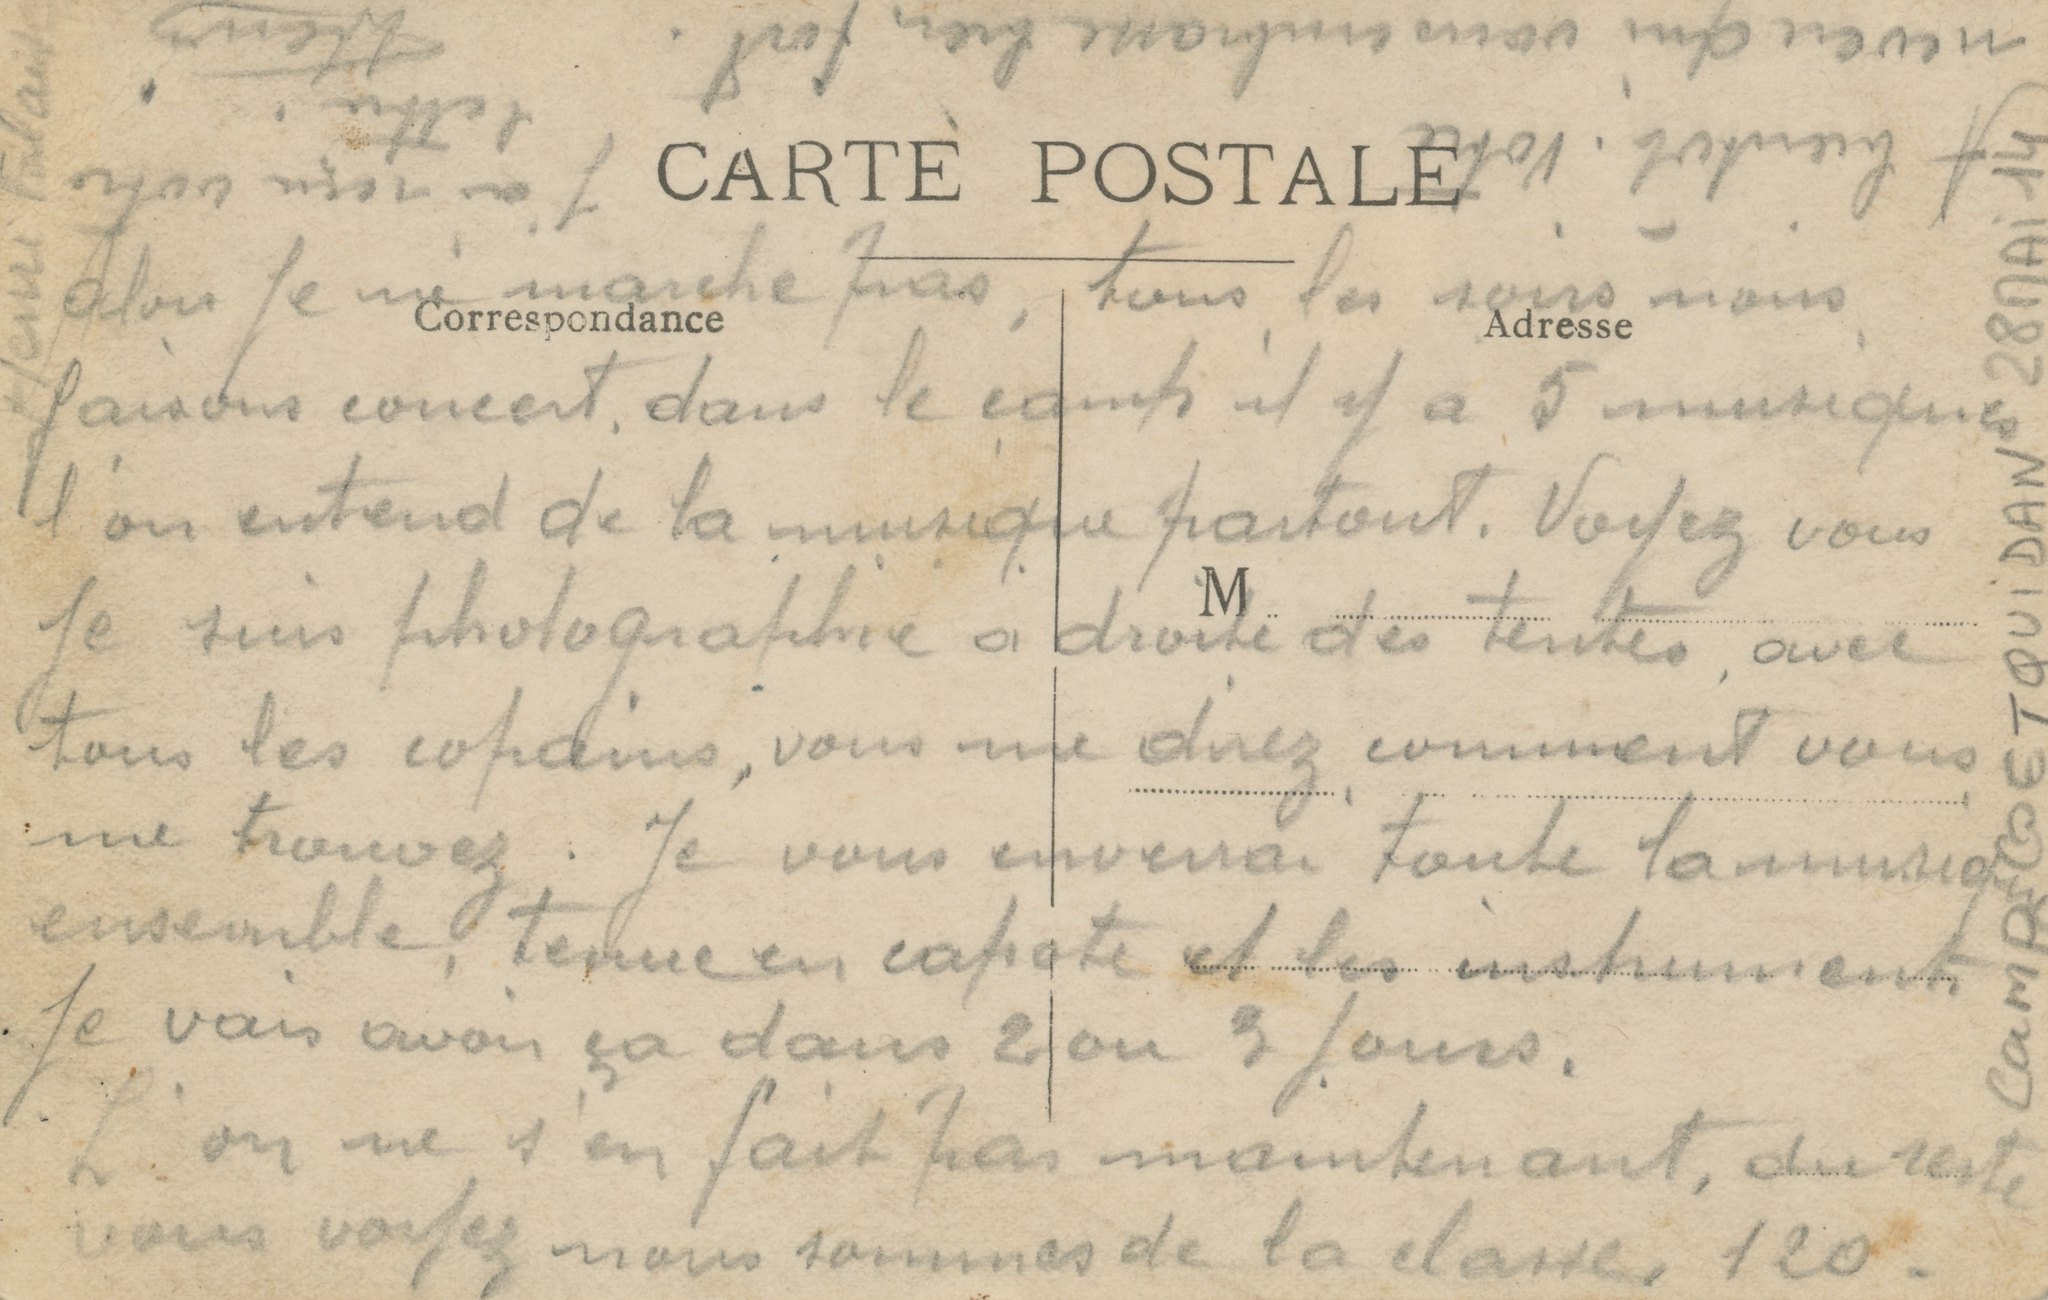 CARTE POSTALE
Correspondance
Adresse
M
alors je ne marche pas, tous les soirs nous
faisons concert, dans le camp il y a 5 musiques
l'on entend de la musique partout. Voyez vous
je suis photographie a droite des tentes, avec
tous les copains, vous me direz comment vous
me trouvez. Je vous enverrai toute la musiq
ensemble, tenue en capote et les instruments
Je vais avoir ça dans 2 ou 3 jours.
L'on ne s'en fait pas maintenant, du reste
vous voyez nous sommes de la classe, 120.
A bientot. Votre
neveu qui vous embrasse bien fort.
Henri
J'ai reçu votre
lettre.
CAMP DE COETQUIDAN 28 MAI 14
Henri